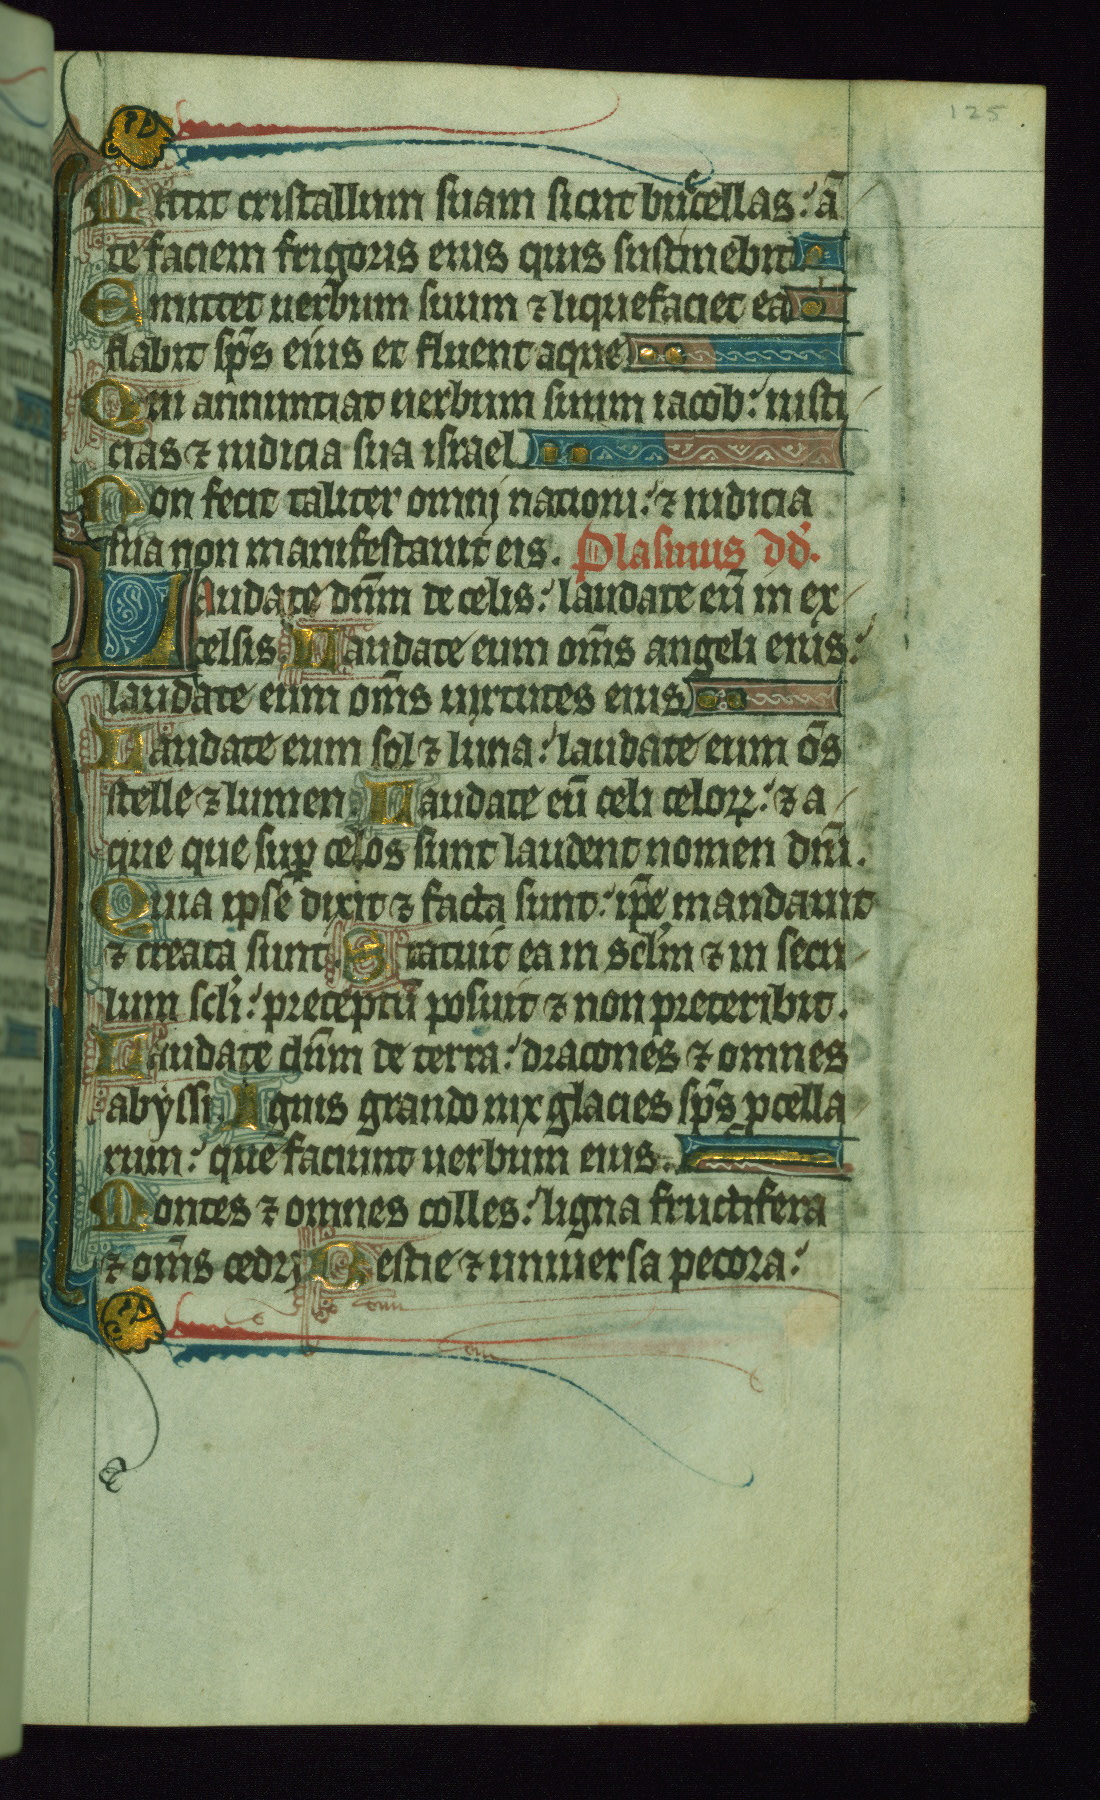 125
Mittit cristallum suam sicut bucellas: ā
te faciem frigoris eius quis sustinebit
Emittet uerbum suum ⁊ liquefaciet ea
flabit sp̄s eius et fluent aque
Qui annuntiat uerbum suum iacob: iusti
cias ⁊ iudicia sua israel
Non fecit taliter omnj nationi: ⁊ iudicia
sua non manifestauit eis. Plasmus dd̓.
Laudate dn̄m de celis: laudate eū in ex
celsis Laudate eum om̄s angeli eius:
laudate eum om̄s uirtutes eius
Laudate eum sol ⁊ luna: laudate eum ōs
stelle ⁊ lumen. Laudate eū celi celoꝝ: ⁊ a
que que suꝑ celos sunt laudent nomen dn̄i.
Quia ipse dixit ⁊ facta sunt: ip̄e mandauit
⁊ creata sunt. Statuit ea in scl̓m ⁊ in secu
lum scl̓i: preceptū posuit ⁊ non preteribit.
Laudate dn̄m de terra: dracones ⁊ omnes
abyssi. Ignis grando nix glacies sp̄s ꝓcella
rum: que faciunt uerbum eius.
Montes ⁊ omnes colles: ligna fructifera
⁊ om̄s cedri Bestie ⁊ uniuersa pecora: